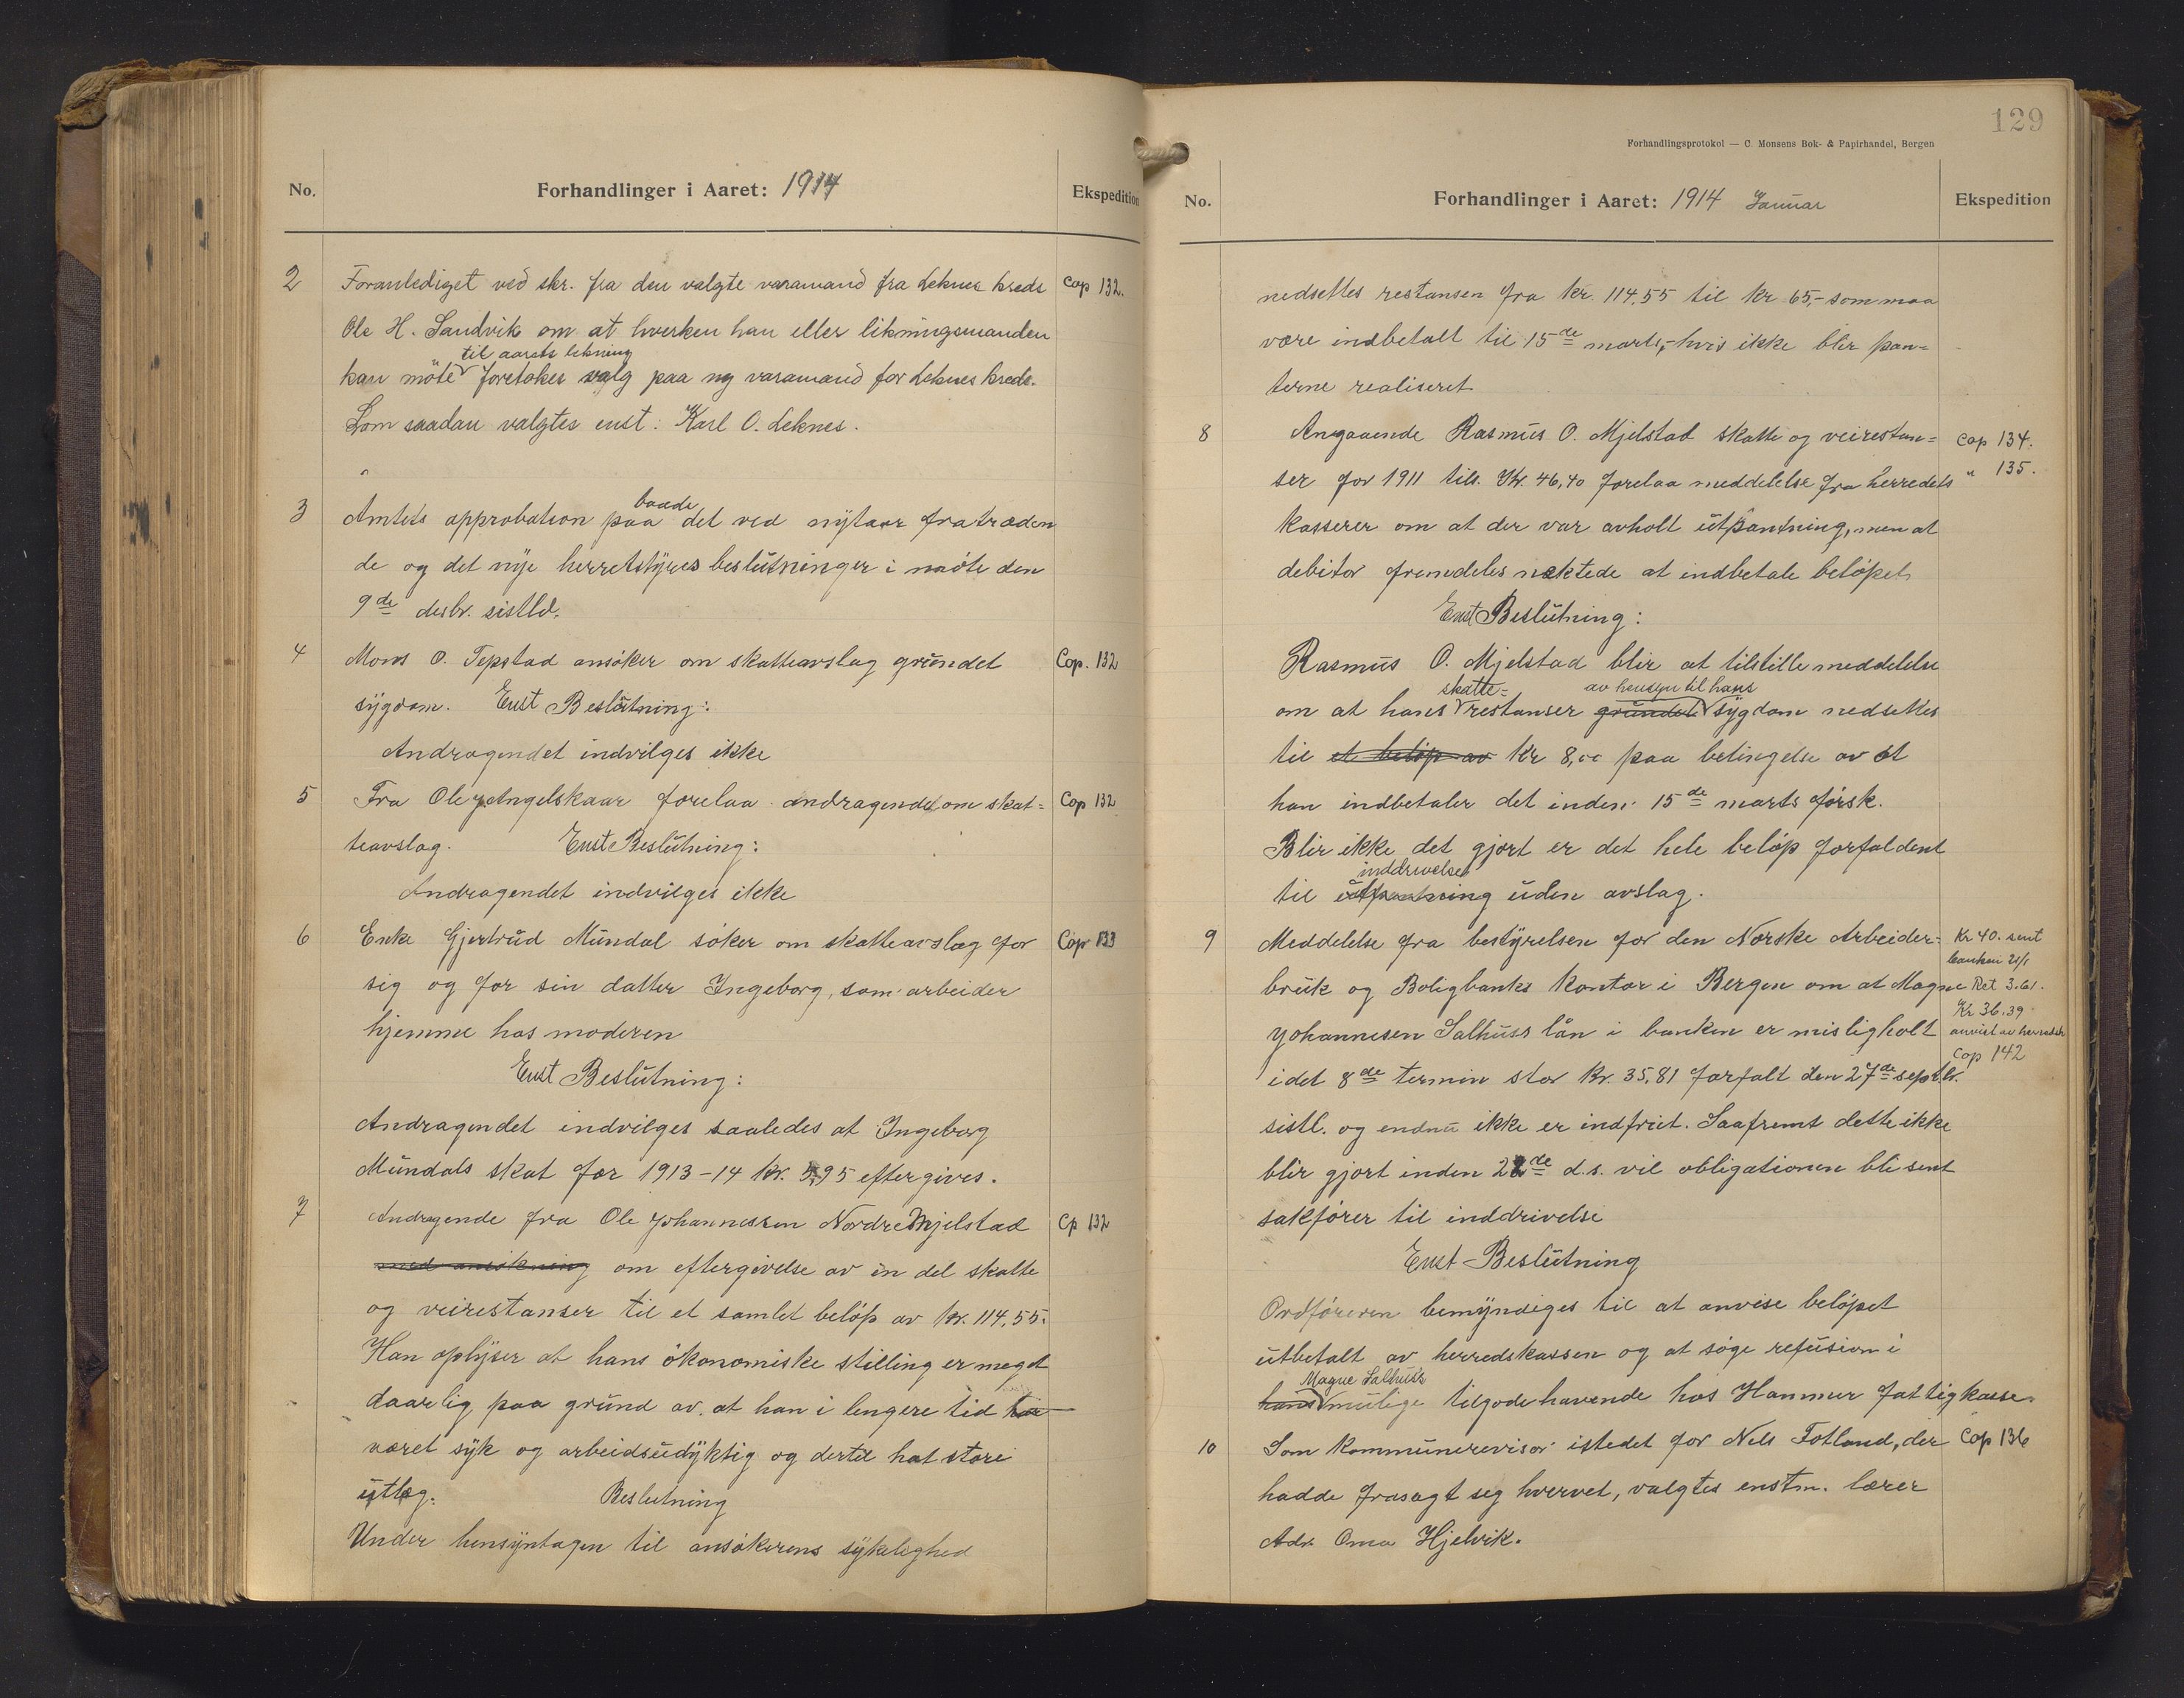 No.
Forhandlinger i Aaret: 1914
Ekspedition
2 Foranlediget ved skr. fra den valgte varamand fra Leknes kreds Cop 132.
Ole H. Sandvik om at hverken han eller likningsmanden
til aarets likning
kan möte foretokes valg paa ny varamand for Leknes kreds.
Som saadan valgtes enst: Karl O. Leknes.
baade
3 Amtets approbation paa det ved nytaar fratræden
de og det nye herretstyres beslutninger i möte den
9de desbr. sistld.
4 Mons O. Tepstad ansöker om skatteavslag grundet Cop. 132
sygdom. Enst Beslutning:
Andragendet indvilges ikke
5 Fra Ole Angelskaar forelaa andragendet om skat= Cop 132
teavslag. Enst Beslutning:
Andragendet indvilges ikke
6 Enke Gjertrud Mundal söker om skatteavslag for Cop 133
sig og for sin datter Ingeborg, som arbeider
hjemme hos moderen
Enst Beslutning:
Andragendet indvilges saaledes at Ingeborg
Mundals skat for 1913-14 kr. 5,95 eftergives.
7 Andragende fra Ole Johannessen Nordre Mjelstad Cp 132
med ansökning om eftergivelse av en del skatte
og veirestanser til et samlet belöp av kr. 114,55.
Han oplyser at hans ökonomiske stilling er meget
daarlig paa grund av at han i lengere tid har
været syk og arbeidsudyktig og dertil hat store
utlæg. Beslutning
Under hensyntagen til ansökerens sykelighed
129
Forhandlingsprotokol — C. Monsens Bok- & Papirhandel, Bergen
No.
Forhandlinger i Aaret: 1914 Januar
Ekspedition
nedsettes restansen fra kr. 114,55 til kr 65,- som maa
være indbetalt til 15de marts,- hvis ikke blir pan=
terne realiseret
8 Angaaende Rasmus O. Mjelstad skatte og veirestan= Cop 134.
ser for 1911 tils. Kr. 46,40 forelaa meddelelse fra herredets " 135.
kasserer om at der var avholt utpantning, men at
debitor fremdeles nektede at indbetale belöpet
Enst Beslutning:
Rasmus O. Mjelstad blir at tilstille meddelelse
skatte= av hensyn til hans
om at hans restanser grundet sygdom nedsettes
til et belöp av Kr 8,00 paa betingelse av at
han indbetaler det inden 15de marts först.
Blir ikke det gjort er det hele belöp forfaldent
inddrivelse
til utpantning uden avslag.
9 Meddelelse fra bestyrelsen for den Norske Arbeider= Kr 40. sent
banken 21/1
bruk og Boligbanks kontor i Bergen om at Magne Ret 3.61.
Kr 36.39
Johannesen Salhuss lån i banken er misligholt anvist av herredsk
Cop 142
idet 8de termin stor Kr. 35,81 forfalt den 27de septbr.
sistl. og endnu ikke er indfriet. Saafremt dette ikke
blir gjort inden 22de d.s. vil obligationen bli sent
sakförer til inddrivelse
Enst Beslutning
Ordföreren bemyndiges til at anvise belöpet
utbetalt av herredskassen og at söge refusion i
Magne Salhuss
hans mulige tilgodehavende hos Hammer fattigkasse.
10 Som kommunerevisor istedet for Nels Fotland, der Cop 136
hadde frasagt seg hvervet, valgtes enstm. lærer
Adr. Oma Hjelvik.